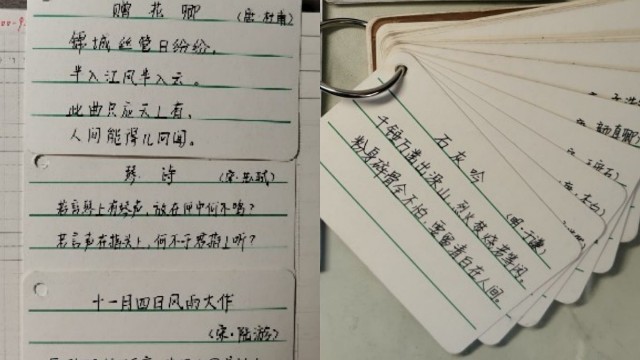 赠花卿 (唐·杜甫)
锦城丝管日纷纷,
半入江风半入云。
此曲只应天上有,
人间能得几回闻。
琴诗 (宋·苏轼)
若言琴上有琴声,放在匣中何不鸣?
若言声在指头上,何不于君指上听?
十一月四日风雨大作
(宋·陆游)
石灰吟
(明·于谦)
千锤万凿出深山,烈火焚烧若等闲。
粉身碎骨全不怕,要留清白在人间。